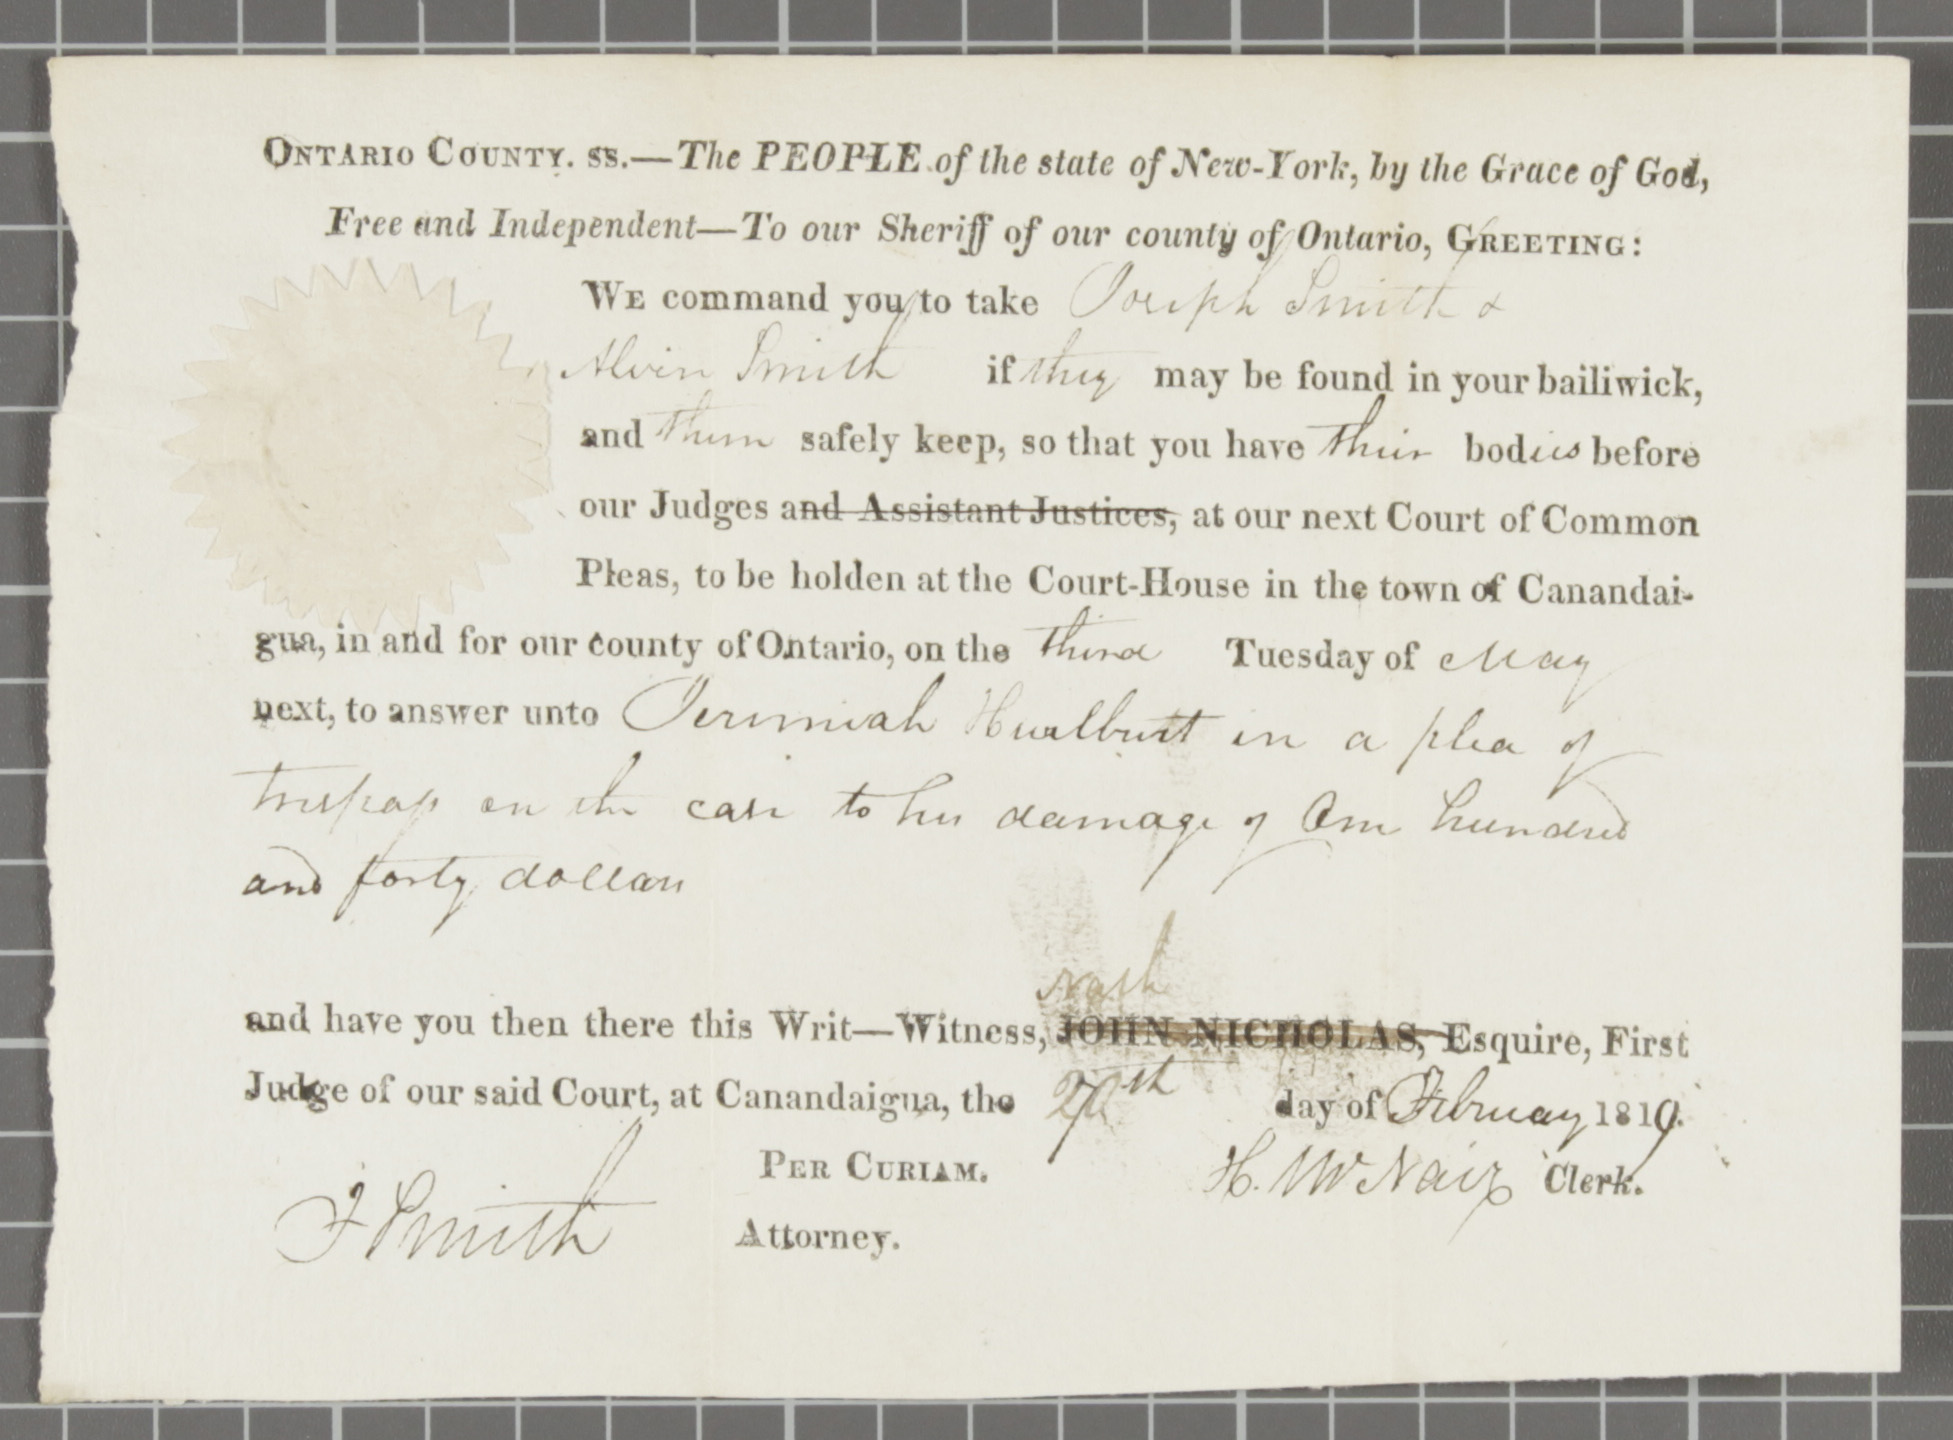 ONTARIO COUNTY. ss.—The PEOPLE of the state of New-York, by the Grace of God,
Free and Independent—To our Sheriff of our county of Ontario, GREETING:
WE command you to take Joseph Smith &
Alvin Smith if they may be found in your bailiwick,
and them safely keep, so that you have their bodies before
our Judges and Assistant Justices, at our next Court of Common
Pleas, to be holden at the Court-House in the town of Canandai-
gua, in and for our county of Ontario, on the third Tuesday of May
next, to answer unto Jeremiah Hurlburt in a plea of
trespass on the case to his damage of One hundred
and forty dollars
Nash
and have you then there this Writ—Witness, JOHN NICHOLAS, Esquire, First
Judge of our said Court, at Canandaigua, the day of February 1819.
PER CURIAM. H. M Nair Clerk.
F Smith Attorney.